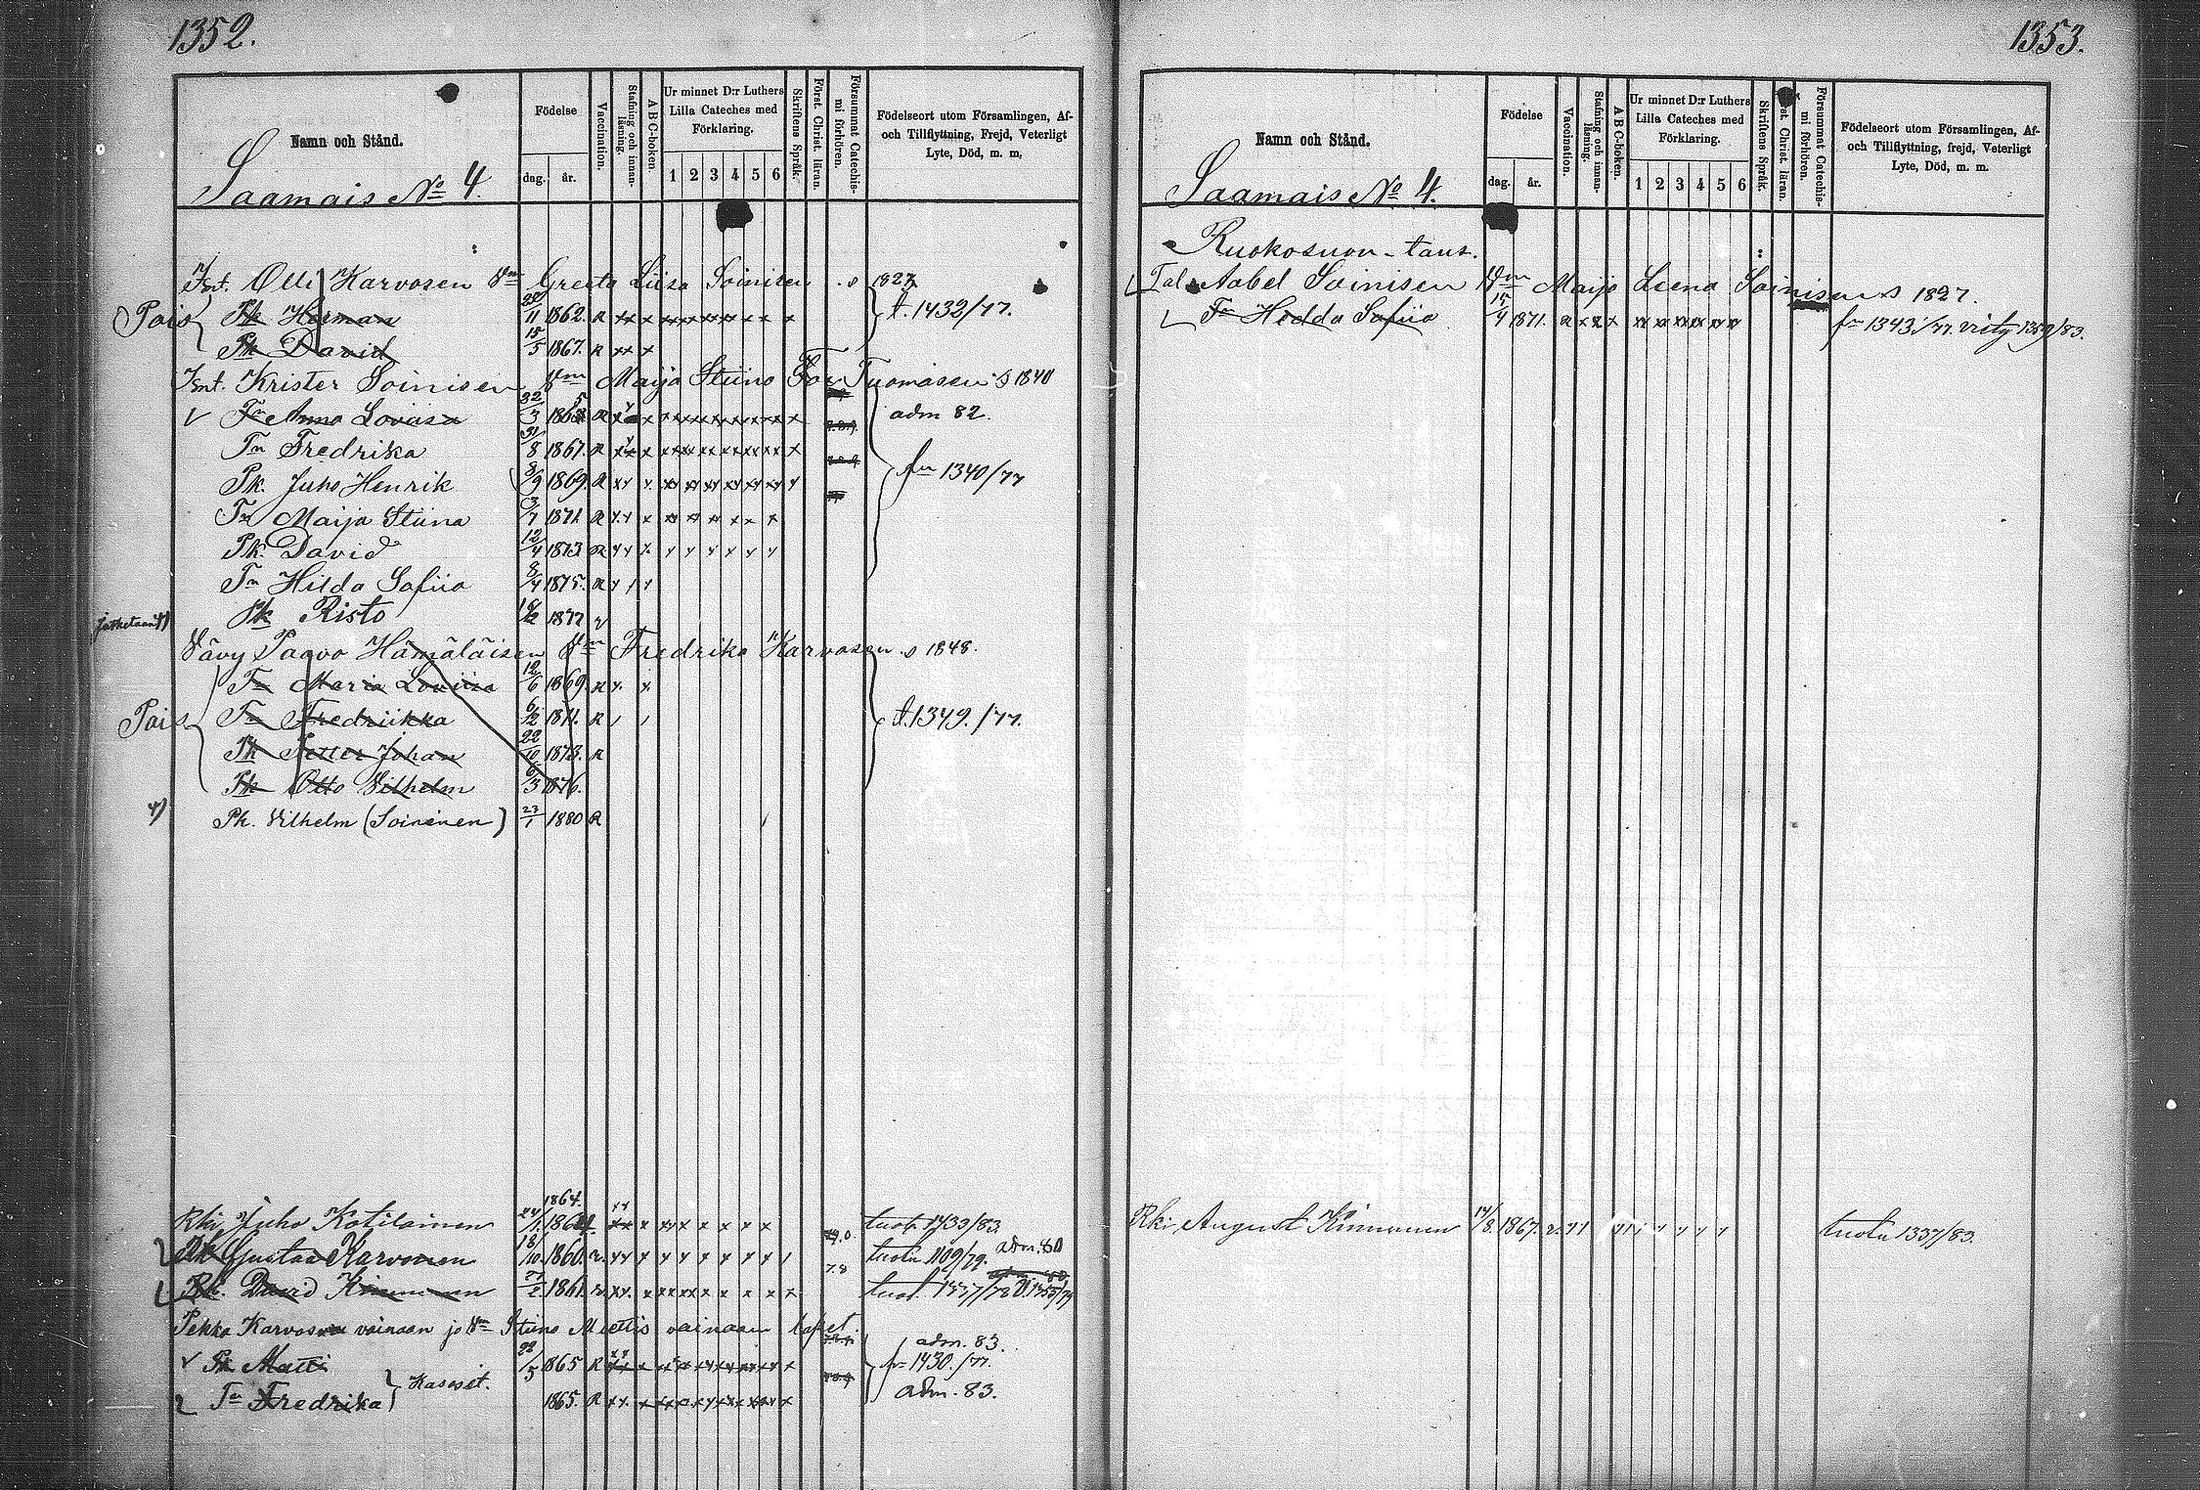 1352.
Namn och Stånd.
Födelse
dag.
år.
Vaccination.
Stafning och innan-läsning.
ABC-boken.
Ur minnet D:r Luthers
Lilla Cateches med
Förklaring.
1 2 3 4 5 6
Skriftens Språk.
Först. Christ. läran.
Försummat Catechis-
mi förhören.
Födelseort utom Församlingen, Af-
och Tillflyttning, Frejd, Veterligt
Lyte, Död, m. m.
Saamais No 4.
Isnt. Olli Karvosen Vm Greeta Liisa Soinisen s 1827
Pois
Pk Herman 11 1862. R t. 1432/77.
Pk David 15/5 1867. R
Isnt. Krister Soinisen Vm Maija Stiina Tuomassen s 1840
Tr Anna Lovisa 3 R adm 82.
Tr Fredrika 31/8 1867. R
Pk. Juho Henrik 8/9 1869. R fr 1340/77
Tr Maija Stiina 3/7 1871. R
Pk. David 12/4 1873 R
Tr Hilda Sofiia 8/4 1875. R
Pk Risto 1877
Vävy Paavo Hämäläisen Vm Fredrika Karvosen s 1848.
Tr Maria Loviisa 12/6 1869. R
Pois
Tr Fredriikka 6/12 1871. R t. 1349./77.
Pk Petter Johan 22/10 1873. R
Pk Otto Vilhelm 6/3 1876.
Pk. Vilhelm (Soininen) 23/1 1880 R
1864.
Rki Juho Kotilainen 24/1 tuotu 1433/83
Rk Gustaa Karvonen 18/10 1860. tuotu 1109/79. adm. 80
Rk. David Kinnunen 1861.
Pekka Karvosen vainaan ja Vm Stiina Miettis vainaan lapset.
Pk Matti 22/5 1865 R adm. 83. fr 1430./77.
Tr Fredrika Kasosit. 1865. R adm. 83.
1353.
Namn och Stånd.
Födelse
dag.
år.
Vaccination.
Stafning och innan-läsning.
ABC-boken.
Ur minnet D:r Luthers
Lilla Cateches med
Förklaring.
1 2 3 4 5 6
Skriftens Språk.
Christ. läran.
Försummat Catechis-
mi förhören.
Födelseort utom Församlingen, Af-
och Tillflyttning, frejd, Veterligt
Lyte, Död, m. m.
Saamais No 4.
Ruokosuon-taus.
Tal. Aabel Soinisen Vm Maija Leena Soinisen s 1827.
Tr Hedda Sofiia 15/4 1871. R fr 1343/77.
Rki August Kinnunen 14/8 1867. tuotu 1337/83.